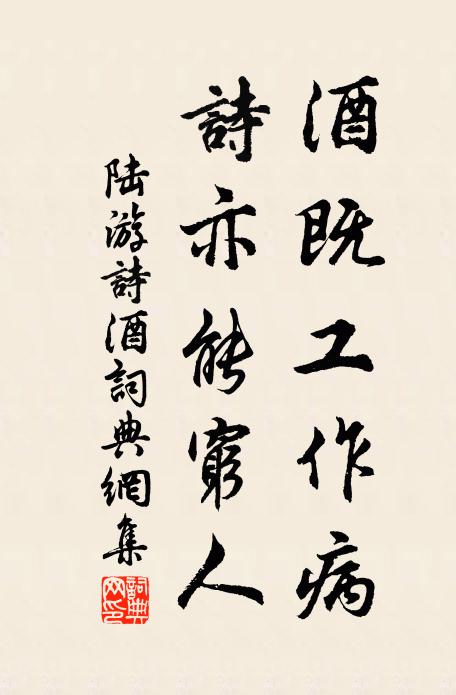 酒既工作病
詩亦能窮人
陆游詩酒詞典網集
詞典網印